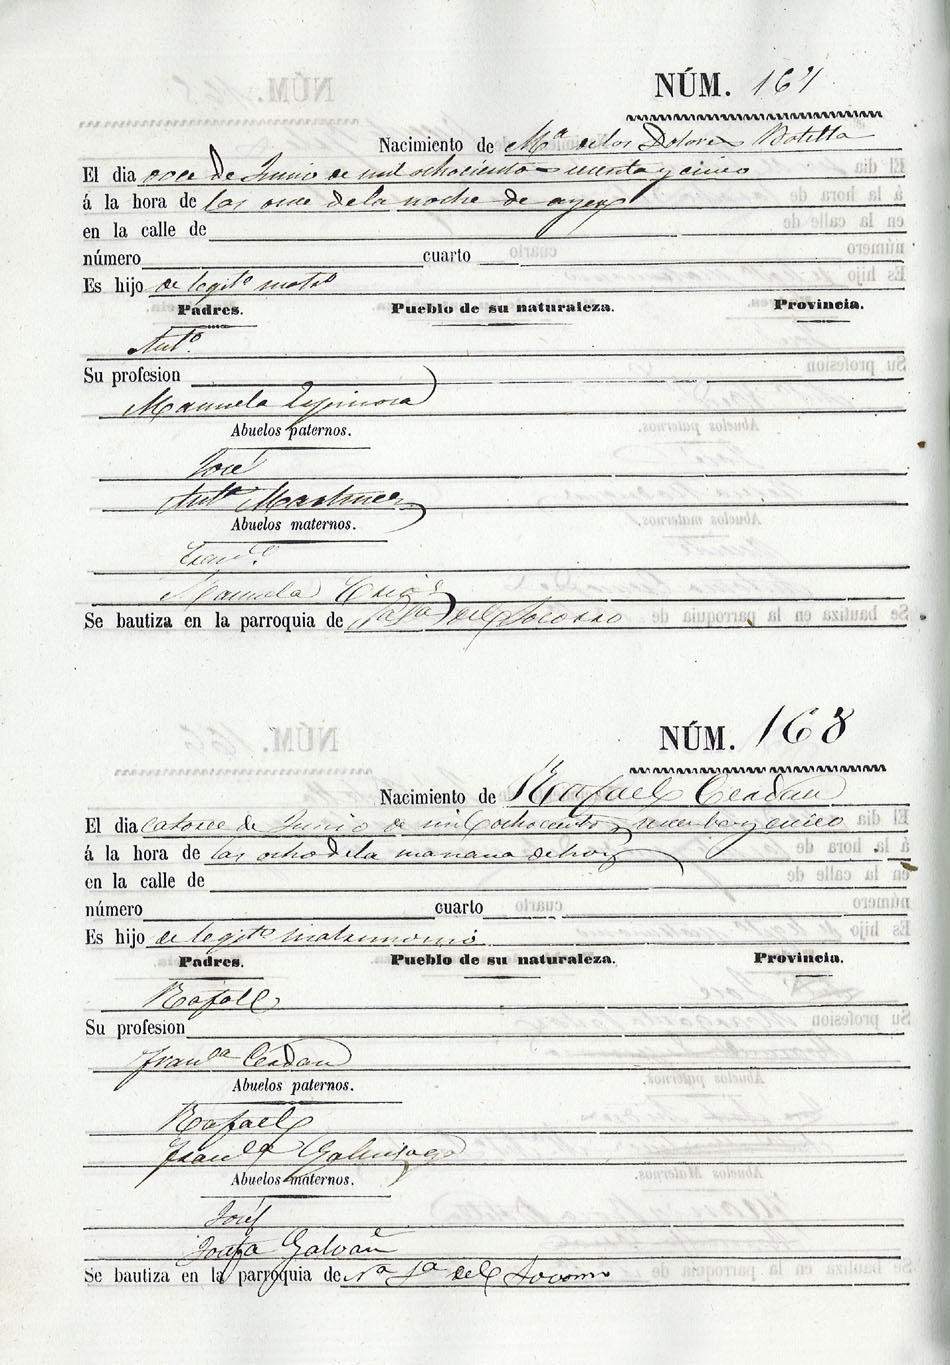 NÚM. 167
Nacimiento de Mª de los Dolores Botella
El dia once de Junio de mil ochociento y cinco
á la hora de las once de la noche de ayer
en la calle de
número cuarto
Es hijo de legitº matrº
Padres. Pueblo de su naturaleza. Provincia.
Antº
Su profesion
Manuela Espinosa
Abuelos paternos.
José
Antª Martinez
Abuelos maternos.
Manuela
Se bautiza en la parroquia de del Socorro
NÚM. 168
Nacimiento de Rafael Cerdan
El dia catorce de Junio de mil ochociento y cinco
á la hora de las ocho de la mañana de hoy
en la calle de
número cuarto
Es hijo de legitº matrimonio
Padres. Pueblo de su naturaleza. Provincia.
Rafael
Su profesion
Franca Cerdan
Abuelos paternos.
Rafael
Franca
Abuelos maternos.
José
Josefa Galvañ
Se bautiza en la parroquia de Nª Sª del Socorro